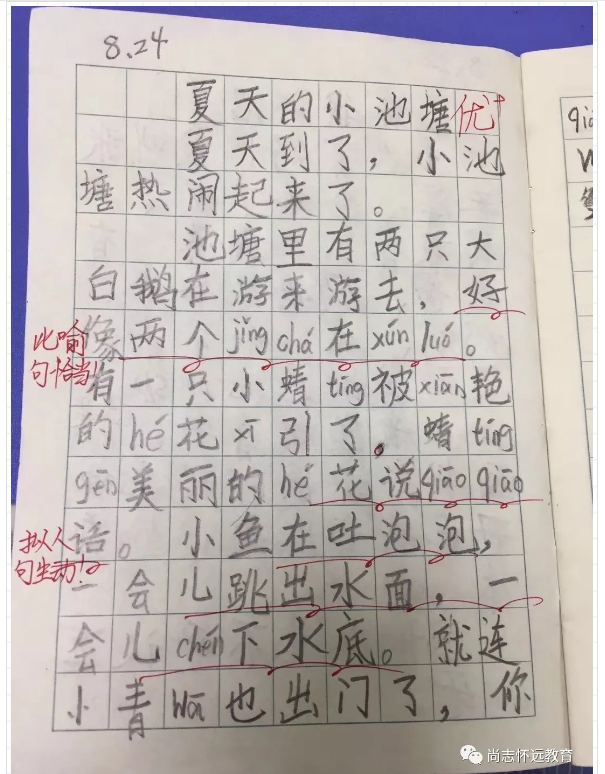 8.24
夏天的小池塘 优+
夏天到了，小池
塘热闹起来了。
池塘里有两只大
白鹅在游来游去，好
像两个jǐng chá在xún luó。
比喻
句恰当！
有一只小蜻tíng被xiān艳
的hé花xī引了。蜻tíng
gēn美丽的hé花说qiāo qiāo
语。小鱼在吐泡泡，
拟人
句生动！
一会儿跳出水面，一
会儿chén下水底。就连
小青wā也出门了，你
尚志怀远教育